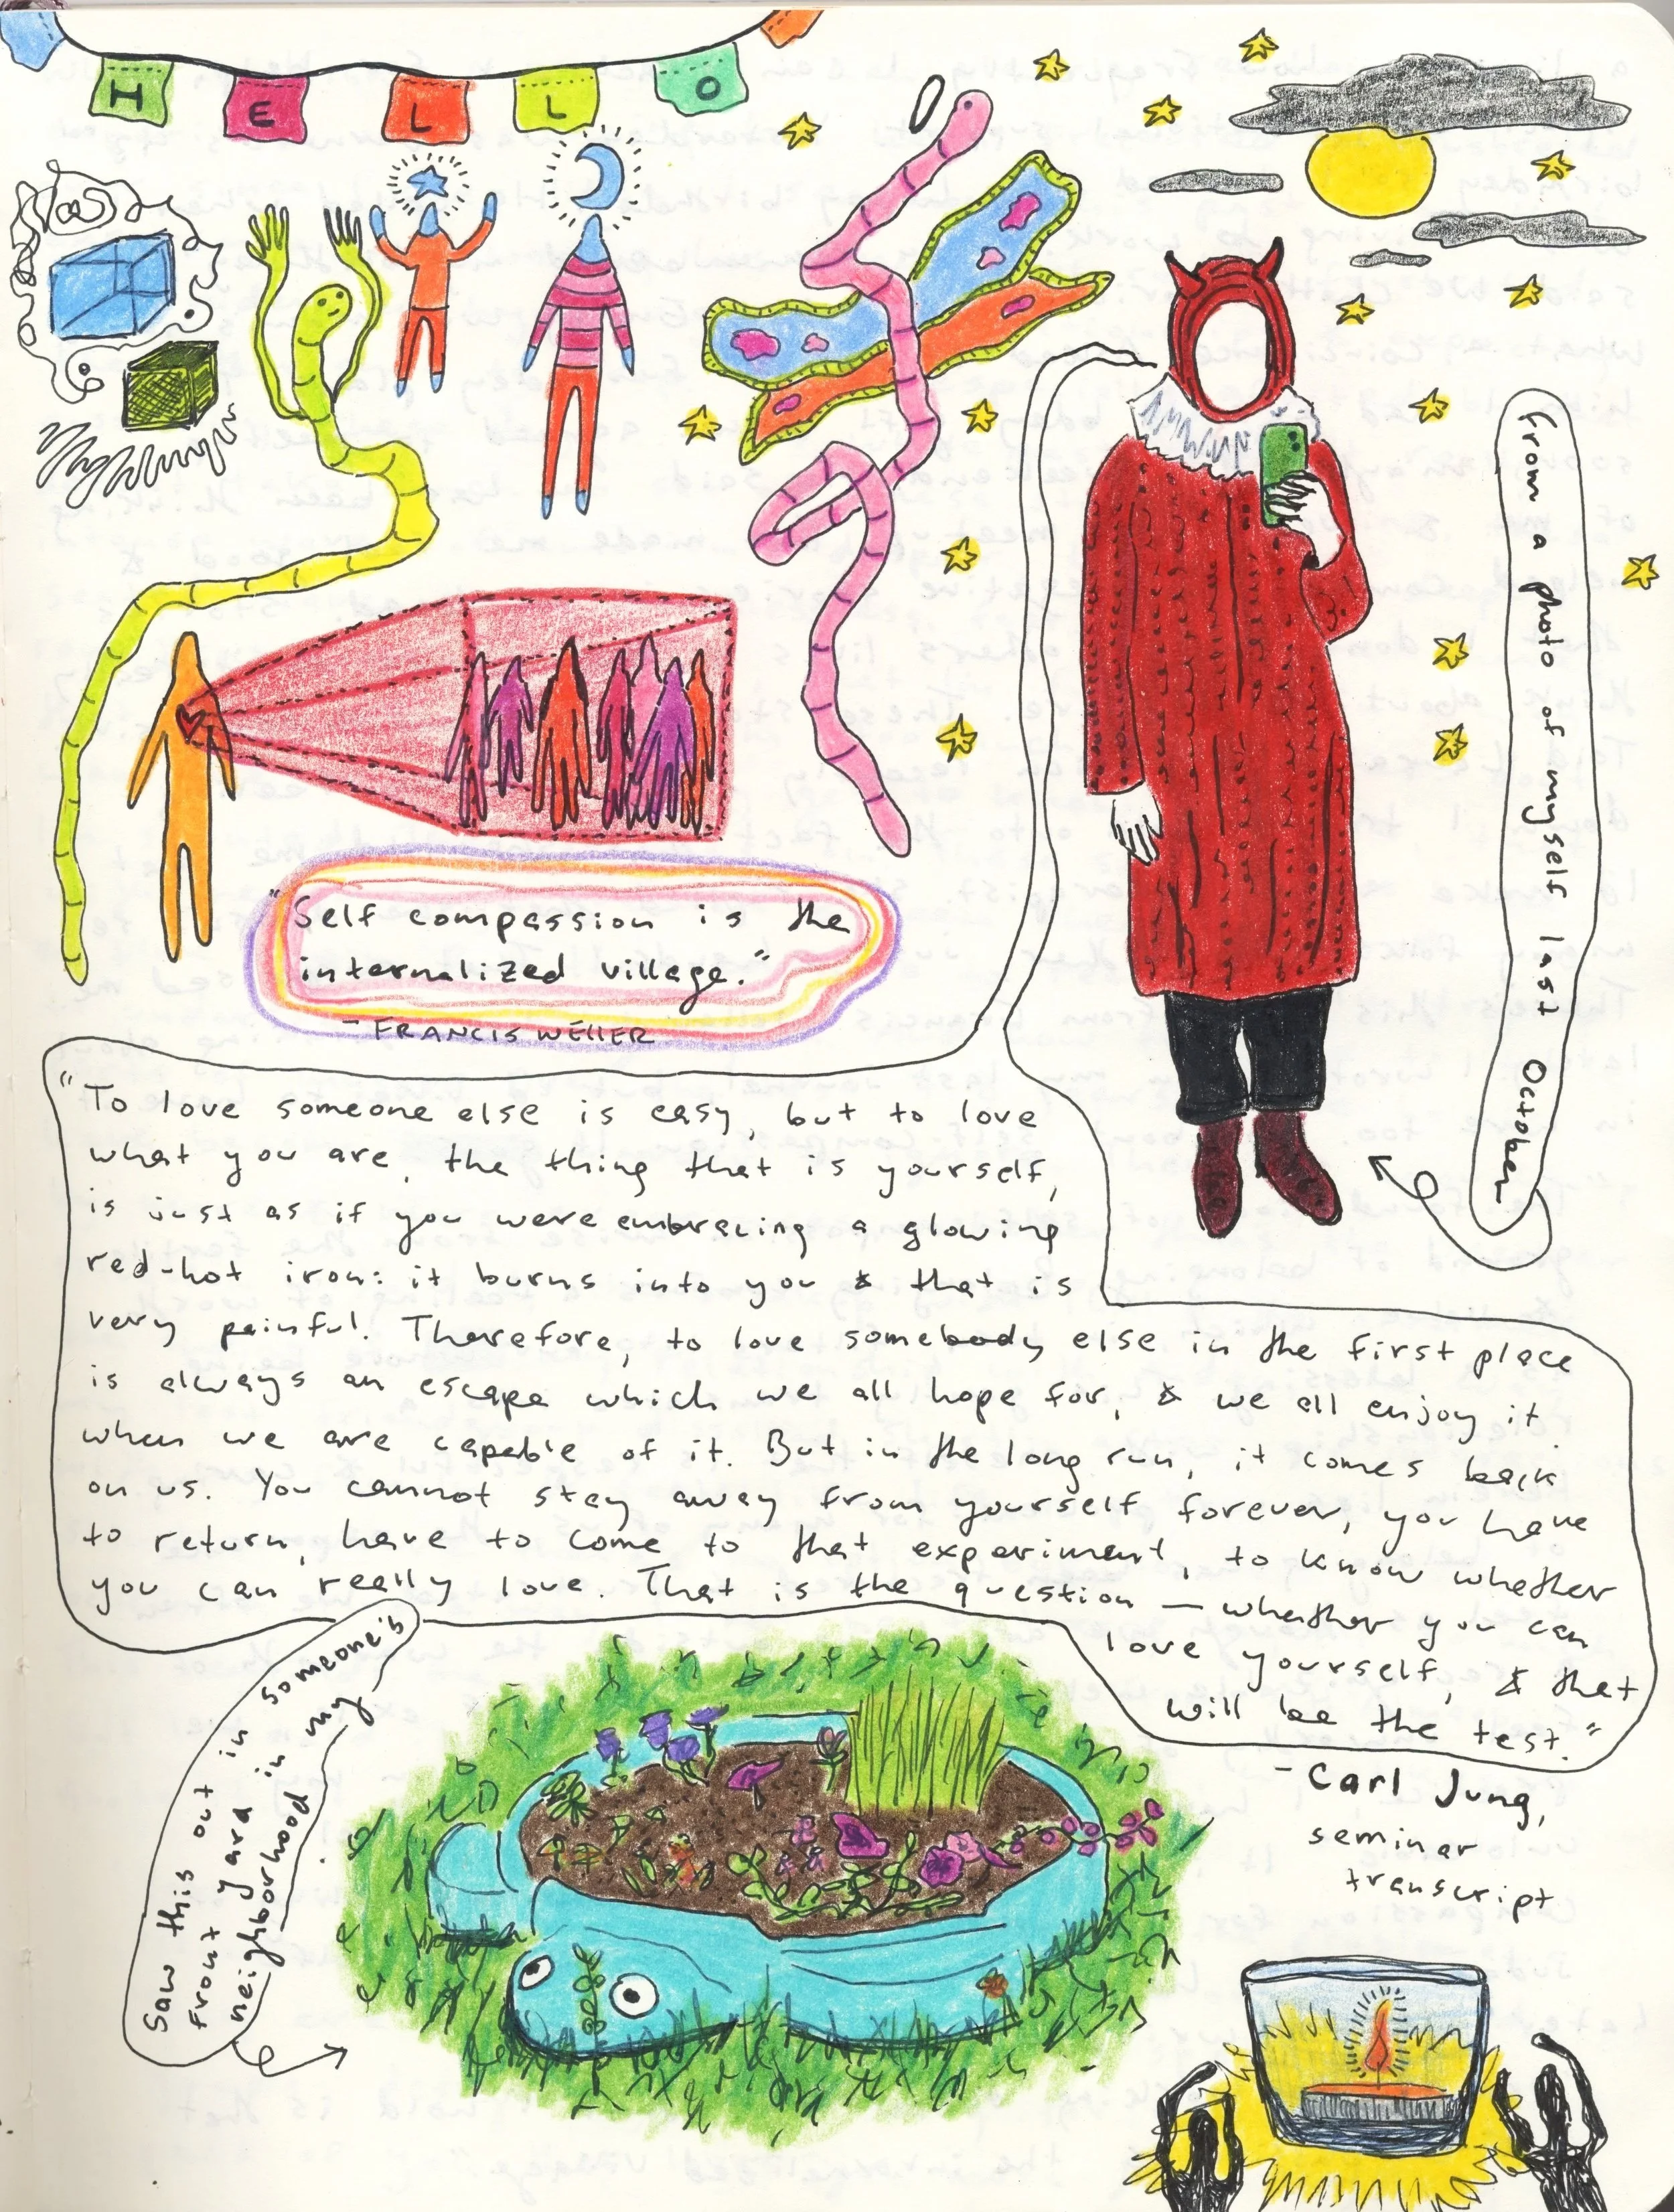 HELLO
"Self compassion is the
internalized village."
- FRANCIS WELLER
from a photo of myself last October
"To love someone else is easy, but to love
what you are, the thing that is yourself,
is just as if you were embracing a glowing
red-hot iron: it burns into you & that is
very painful. Therefore, to love somebody else in the first place
is always an escape which we all hope for, & we all enjoy it
when we are capable of it. But in the long run, it comes back
on us. You cannot stay away from yourself forever, you have
to return, have to come to that experiment, to know whether
you can really love. That is the question — whether you can
love yourself, & that
will be the test."
- Carl Jung,
seminar
transcript
Saw this out in someone's
front yard in my
neighborhood